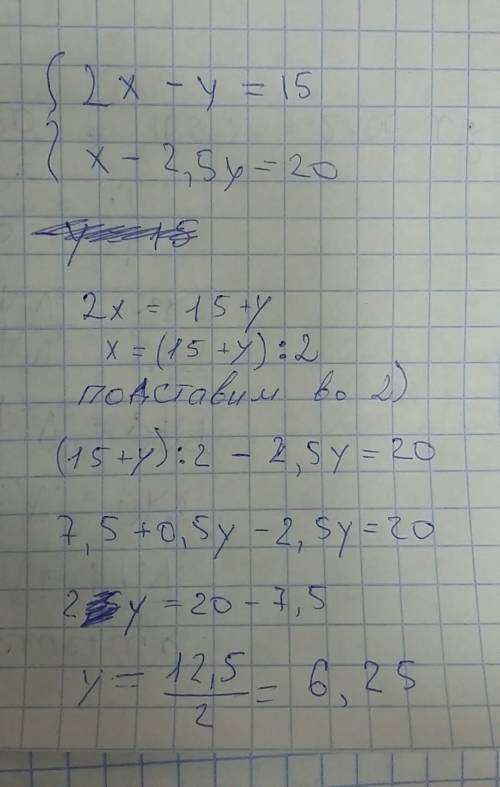 2x - y = 15
x - 2,5y = 20
2x = 15 + y
x = (15 + y) : 2
подставим во 2)
(15 + y) : 2 - 2,5y = 20
7,5 + 0,5y - 2,5y = 20
2y = 20 - 7,5
y = 12,5/2 = 6,25